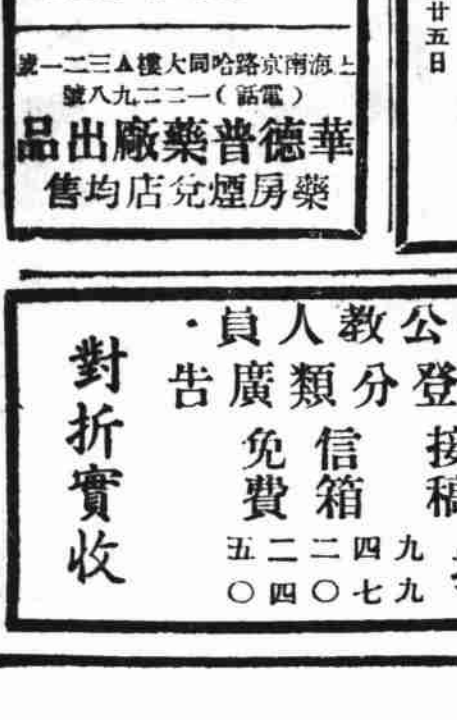 廿五日
上海南京路哈同大樓A三二一號
（電話）一二二九八號
華德普藥廠出品
藥房煙兌店均售
公教人員・
登分類廣告
接稿
信箱
免費
九四二二五
九七〇四〇
對折實收